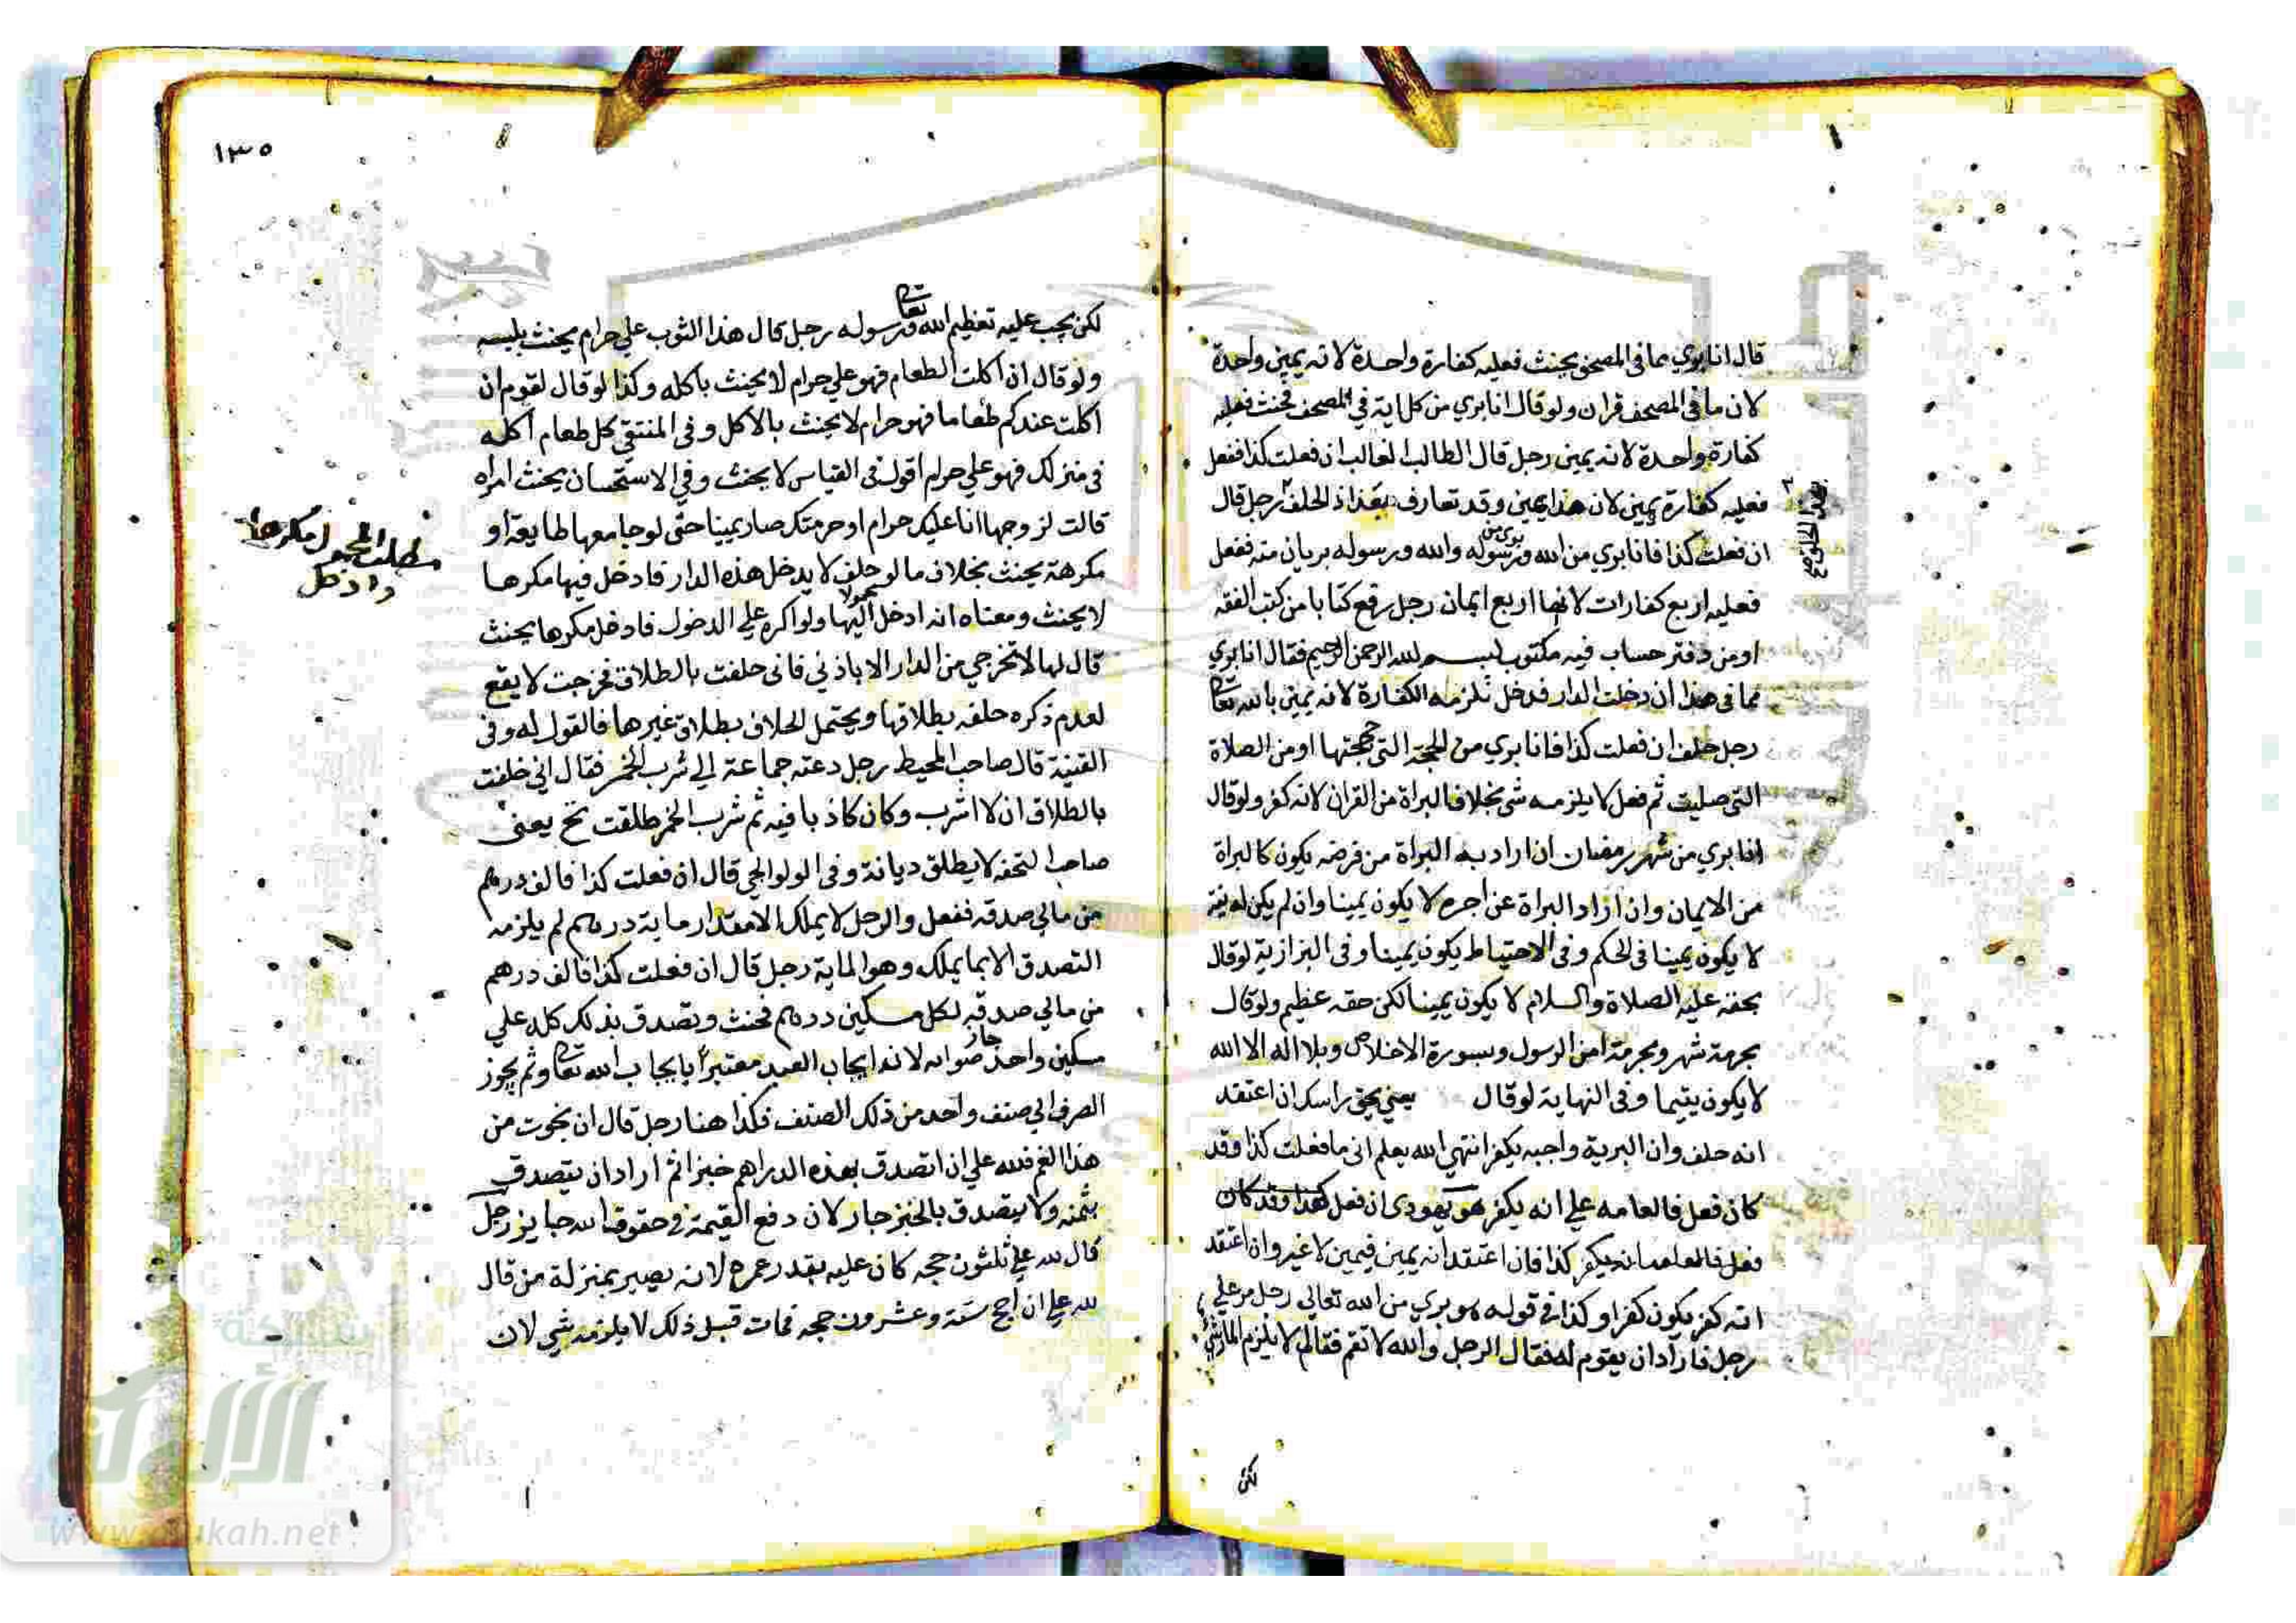 قال انا بري مما في المصحف يحنث فعليه كفارة واحدة لانه يمين واحدة
لان ما في المصحف قران ولو قال انا بري من كل اية في المصحف فحنث فعليه
كفارة واحدة لانه يمين رجل قال الطالب الغالب ان فعلت كذا ففعل
فعليه كفارة يمين لان هذا يمين وقد تعارف بغداذ الحلف رجل قال
ان فعلت كذا فانا بري من الله ورسوله والله ورسوله بريان منه ففعل
بري من
فعليه اربع كفارات لانها اربع ايمان رجل رفع كتابا من كتب الفقه
او من دفتر حساب فيه مكتوب بسم الله الرحمن الرحيم فقال انا بري
مما في هذا ان دخلت الدار فدخل تلزمه الكفارة لانه يمين بالله تعالى
رجل حلف ان فعلت كذا فانا بري من الحجة التي حججتها او من الصلاة
التي صليت ثم فعل لا يلزمه شي بخلاف البراة من القران لانه كفر ولو قال
انا بري من شهر رمضان ان اراد به البراة من فرضه يكون كالبراة
من الايمان وان اراد البراة عن اجره لا يكون يمينا وان لم يكن له نية
لا يكون يمينا في الحكم وفي الاحتياط يكون يمينا وفي البزازية لو قال
بحقه عليه الصلاة والسلام لا يكون يمينا لكن حقه عظيم ولو قال
بحرمة شهر وبحرمة امن الرسول وبسورة الاخلاص وبلا اله الا الله
لا يكون يمينا وفي النهاية لو قال يعني بحق راسك ان اعتقد
انه حلف وان البرية واجبه يكفر انتهي الله يعلم اني ما فعلت كذا وقد
كان فعل فالعامه علي انه يكفر هو يهودي ان فعل كذا وقد كان
فعل يكفر كذا فان اعتقد انه يمين فيمين لا غير وان اعتقد
انه كفر يكون كفرا وكذا في قوله هو بري من الله تعالي رجل مر علي
رجل فاراد ان يقوم له فقال الرجل والله لا تقم فقام لا يلزم المار شي
لكن
١٣٥
لكن يجب عليه تعظيم الله تعالى ورسوله رجل قال هذا الثوب علي حرام يحنث بلبسه
ولو قال ان اكلت الطعام فهو علي حرام لا يحنث باكله وكذا لو قال لقوم ان
اكلت عندكم طعاما فهو حرام لا يحنث بالاكل وفي المنتقي كل طعام اكله
في منزلك فهو علي حرام اقول في القياس لا يحنث وفي الاستحسان يحنث امراه
قالت لزوجها انا عليك حرام او حرمتك صار يمينا حتى لو جامعها طايعة او
مكرهة يحنث بخلاف ما لو حلف لا يدخل هذه الدار فادخل فيها مكرها
لا يحنث ومعناه انه ادخل اليها محمولا ولو اكره علي الدخول فادخل مكرها يحنث
قال لها لا تخرجي من الدار الا باذني فاني حلفت بالطلاق فخرجت لا يقع
لعدم ذكره حلفه بطلاقها ويحتمل الحلاف بطلاق غيرها فالقول له وفي
القنية قال صاحب المحيط رجل دعته جماعة الي شرب الخمر فقال اني حلفت
بالطلاق ان لا اشرب وكان كاذبا فيه ثم شرب الخمر طلقت تح يعني
صاحب التحفه لا يطلق ديانة وفي الولوالجي قال ان فعلت كذا فالف درهم
من مالي صدقه ففعل والرجل لا يملك الا مقدار ماية درهم لم يلزمه
التصدق الا بما يملك وهو الماية رجل قال ان فعلت كذا فالف درهم
من مالي صدقه لكل مسكين درهم فحنث وتصدق بذلك كله علي
مسكين واحد جاز لانه ايجاب العبد معتبر بايجاب الله تعالى وثم يجوز
الصرف الي صنف واحد من ذلك الصنف فكذا هنا رجل قال ان نجوت من
هذا الغم فلله علي ان اتصدق بهذه الدراهم خبزا ثم اراد ان يتصدق
بثمنه ولا يتصدق بالخبز جاز لان دفع القيمة في حقوق الله جايز رجل
قال لله علي ثلثون حجه كان عليه بقدر عمره لانه يصير بمنزلة من قال
لله علي ان احج سنة وعشرون حجه فمات قبل ذلك لا يلزمه شي لان
مكرها
وادخل
شبكة
الألوكة
www.alukah.net